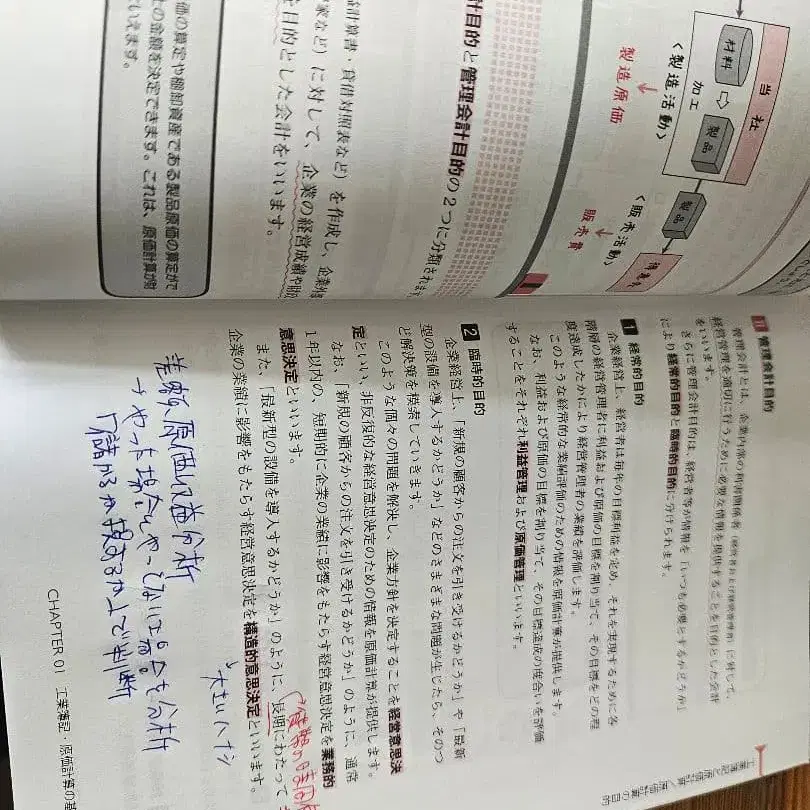 当社
材料
加工
製品
〈製造活動〉
製造原価
製品
〈販売活動〉
販売費
計目的と管理会計目的の2つに分類されます
計算書・貸借対照表など）を作成し、企業外
家など）に対して、企業の経営成績や財
を目的とした会計をいいます。
価の算定や棚卸資産である製品原価の算定がで
の金額を決定できます。これは、原価計算が財
いえます。
管理会計目的
管理会計とは、企業内部の利害関係者（経営者および経営管理者）に対して、
経営管理を適切に行うために必要な情報を提供することを目的とした会計
をいいます。
さらに管理会計目的は、経営者等が情報を「いつも必要とするかどうか」
により経常的目的と臨時的目的に分けられます。
1 経常的目的
企業経営上、経営者は毎年の目標利益を定め、それを実現するために各
階層の経営管理者に利益および原価の目標を割り当て、その目標をどの程
度達成したかにより経営管理者の業績を評価します。
このような経常的な業績評価のための情報を原価計算が提供します。
なお、利益および原価の目標を割り当て、その目標達成の度合いを評価
することをそれぞれ利益管理および原価管理といいます。
2 臨時的目的
企業経営上、「新規の顧客からの注文を引き受けるかどうか」や「最新
型の設備を導入するかどうか」などのさまざまな問題が生じたら、そのつ
ど解決策を模索していきます。
このような個々の問題を解決し、企業方針を決定することを経営意思決
定といい、非反復的な経営意思決定のための情報を原価計算が提供します。
なお、「新規の顧客からの注文を引き受けるかどうか」のように、通常
1年以内の、短期的に企業の業績に影響をもたらす経営意思決定を業務的
意思決定といいます。
また、「最新型の設備を導入するかどうか」のように、長期にわたって
企業の業績に影響をもたらす経営意思決定を構造的意思決定といいます。
大きいハナシ
差額原価収益分析
→やった場合とやってない場合を分析
「儲かるか損するか」で判断
CHAPTER 01 工業簿記・原価計算の基
工業簿記と原価計算／原価計算の目的